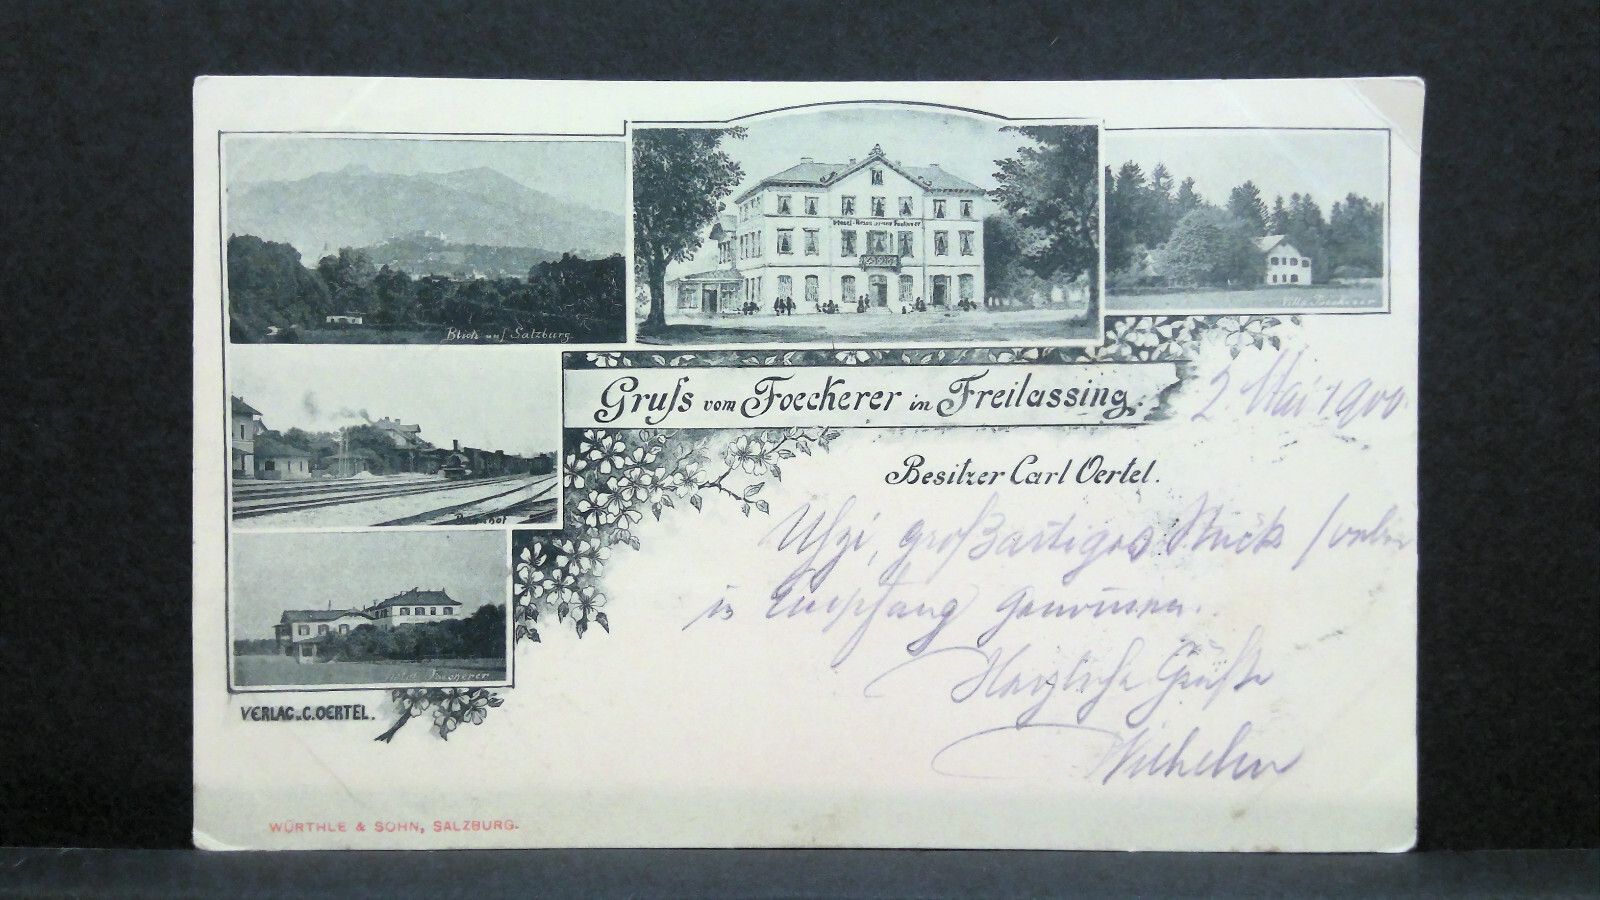 Blick auf Salzburg.
Hotel-Restaurant Föckerer
Villa Foeckerer
Gruſs vom Foeckerer in Freilassing.
2 Mai 1900.
Bahnhof
Besitzer Carl Oertel.
großartiges Stück soeben
in Empfang genommen.
Herzliche Grüße
Wilhelm
Hotel Foeckerer
VERLAG v. C. OERTEL.
WÜRTHLE & SOHN, SALZBURG.